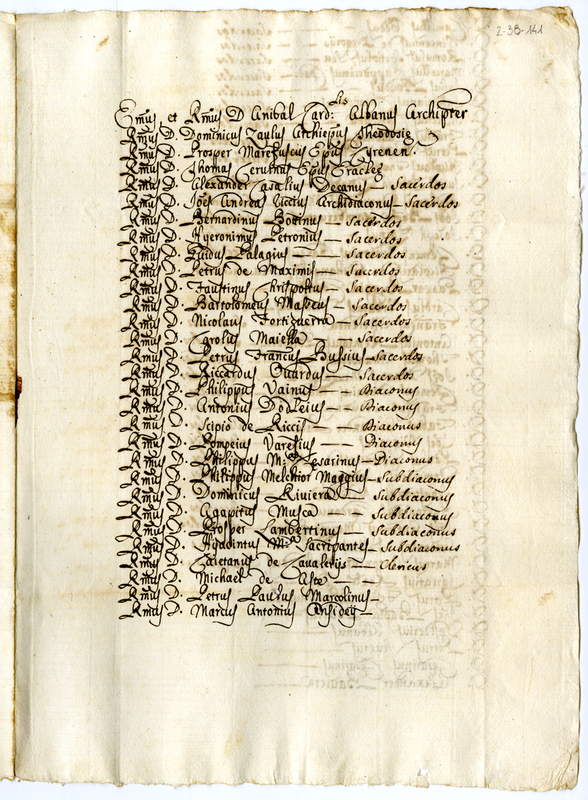 2-38-141
Emus et Rmus D Anibal Card:lis Albanus Archipter
Rmus D. Dominicus Zaulus Archiepus Theodosie
Rmus D. Prosper Marefuscus Epus Cyrenen.
Rmus D. Thomas Cervinus Epus Eracleg
Rmus D. Alexander Casalius Decanus — Sacerdos
Rmus D. Joes Andrea Archidiaconus — Sacerdos
Rmus D. Bernardinus — Sacerdos
Rmus D. Hyeronimus Petronius — Sacerdos
Rmus D. Guidus Palagius — Sacerdos
Rmus D. Petrus de Maximis — Sacerdos
Rmus D. Faustinus Crispoltus — Sacerdos
Rmus D. Bartolomeus Masseus — Sacerdos
Rmus D. Nicolaus Fortiguerra — Sacerdos
Rmus D. Carolus Maiella — Sacerdos
Rmus D. Petrus Francus Bussius — Sacerdos
Rmus D. Riccardus — Sacerdos
Rmus D. Philippus Vainus — Diaconus
Rmus D. Antonius Dodleius — Diaconus
Rmus D. Scipio de Riccis — Diaconus
Rmus D. Pompeius Varesius — Diaconus
Rmus D. Philippus M.a Cesarinus — Diaconus
Rmus D. Philippus Melchior Maggius — Subdiaconus
Rmus D. Dominicus Riviera — Subdiaconus
Rmus D. Agapitus Musca — Subdiaconus
Rmus D. Prosper Lambertinus — Subdiaconus
Rmus D. Hyacintus M.a Sacripantes — Subdiaconus
Rmus D. Caietanus de Cavalerijs — Clericus
Rmus D. Michael de Aste —
Rmus D. Petrus Paulus Marcolinus —
Rmus D. Marcus Antonius Ansideus —